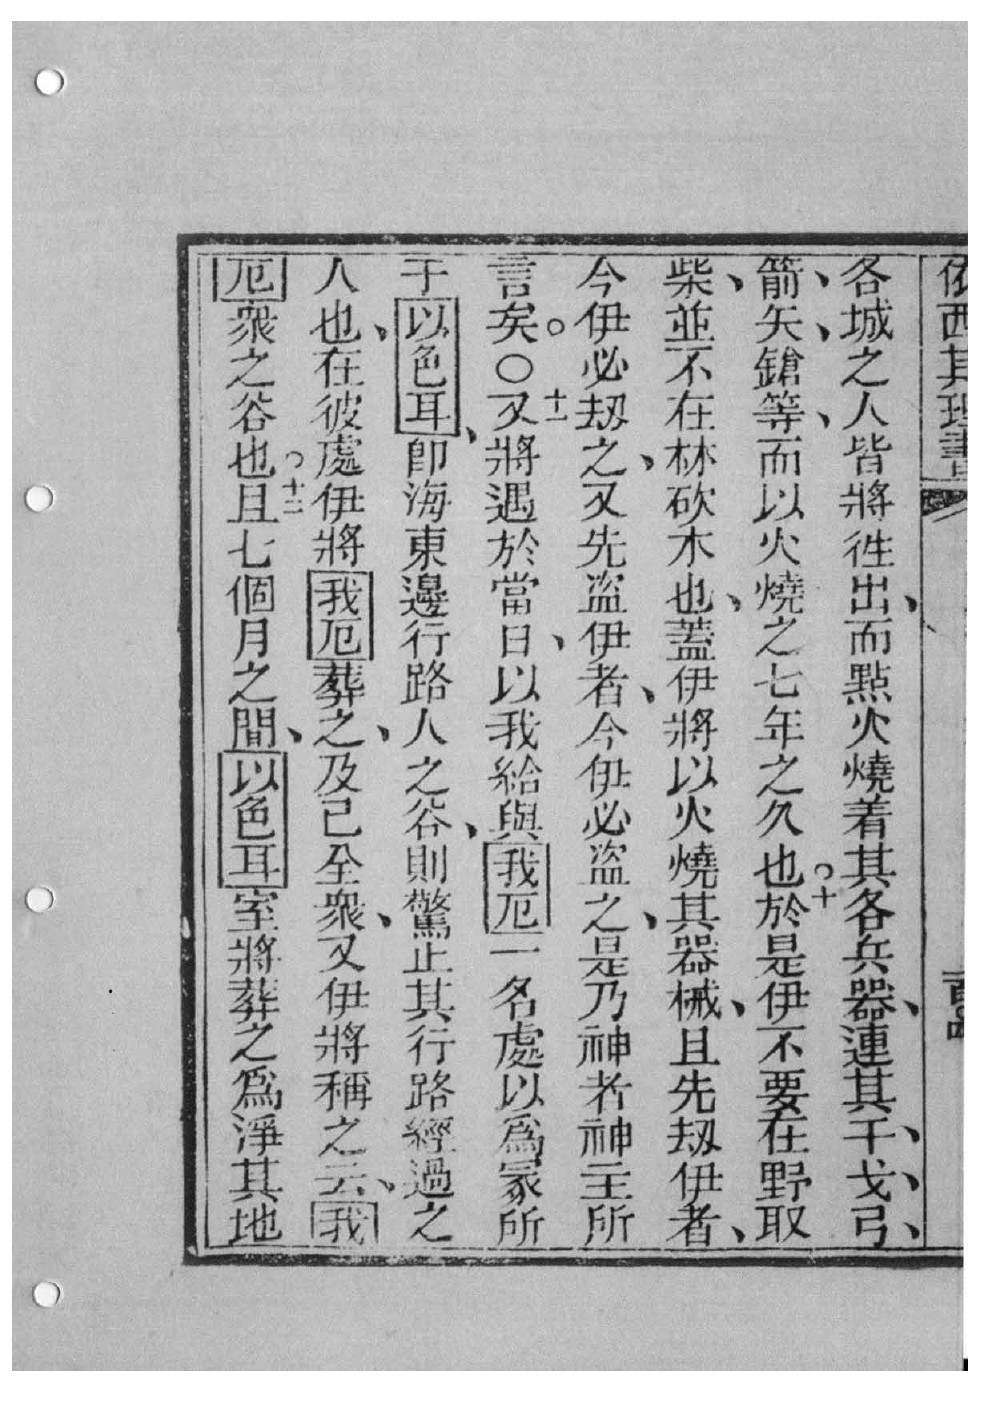 依西其理書
各城之人皆將徃出、而點火燒着其各兵器、連其干、戈、弓、
箭、矢、鎗等、而以火燒之七年之久也。十於是伊不要在野取
柴、並不在林砍木也、蓋伊將以火燒其器械、且先刼伊者、
今伊必刼之、又先盗伊者、今伊必盗之、是乃神者神主所
言矣。○十一又將遇於當日、以我給與我厄一名處以爲冢所
于以色耳、卽海東邊行路人之谷、則驚止其行路經過之
人也、在彼處伊將我厄葬之、及已全衆、又伊將稱之云、我
厄衆之谷也。十二且七個月之間、以色耳室將葬之爲淨其地